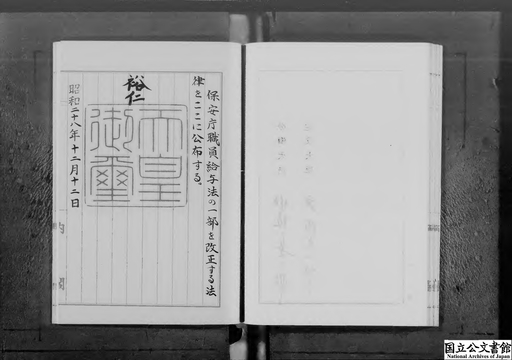 保安庁職員給与法の一部を改正する法
律をここに公布する。
裕仁
天皇
御璽
昭和二十八年十二月十二日
国立公文書館
National Archives of Japan